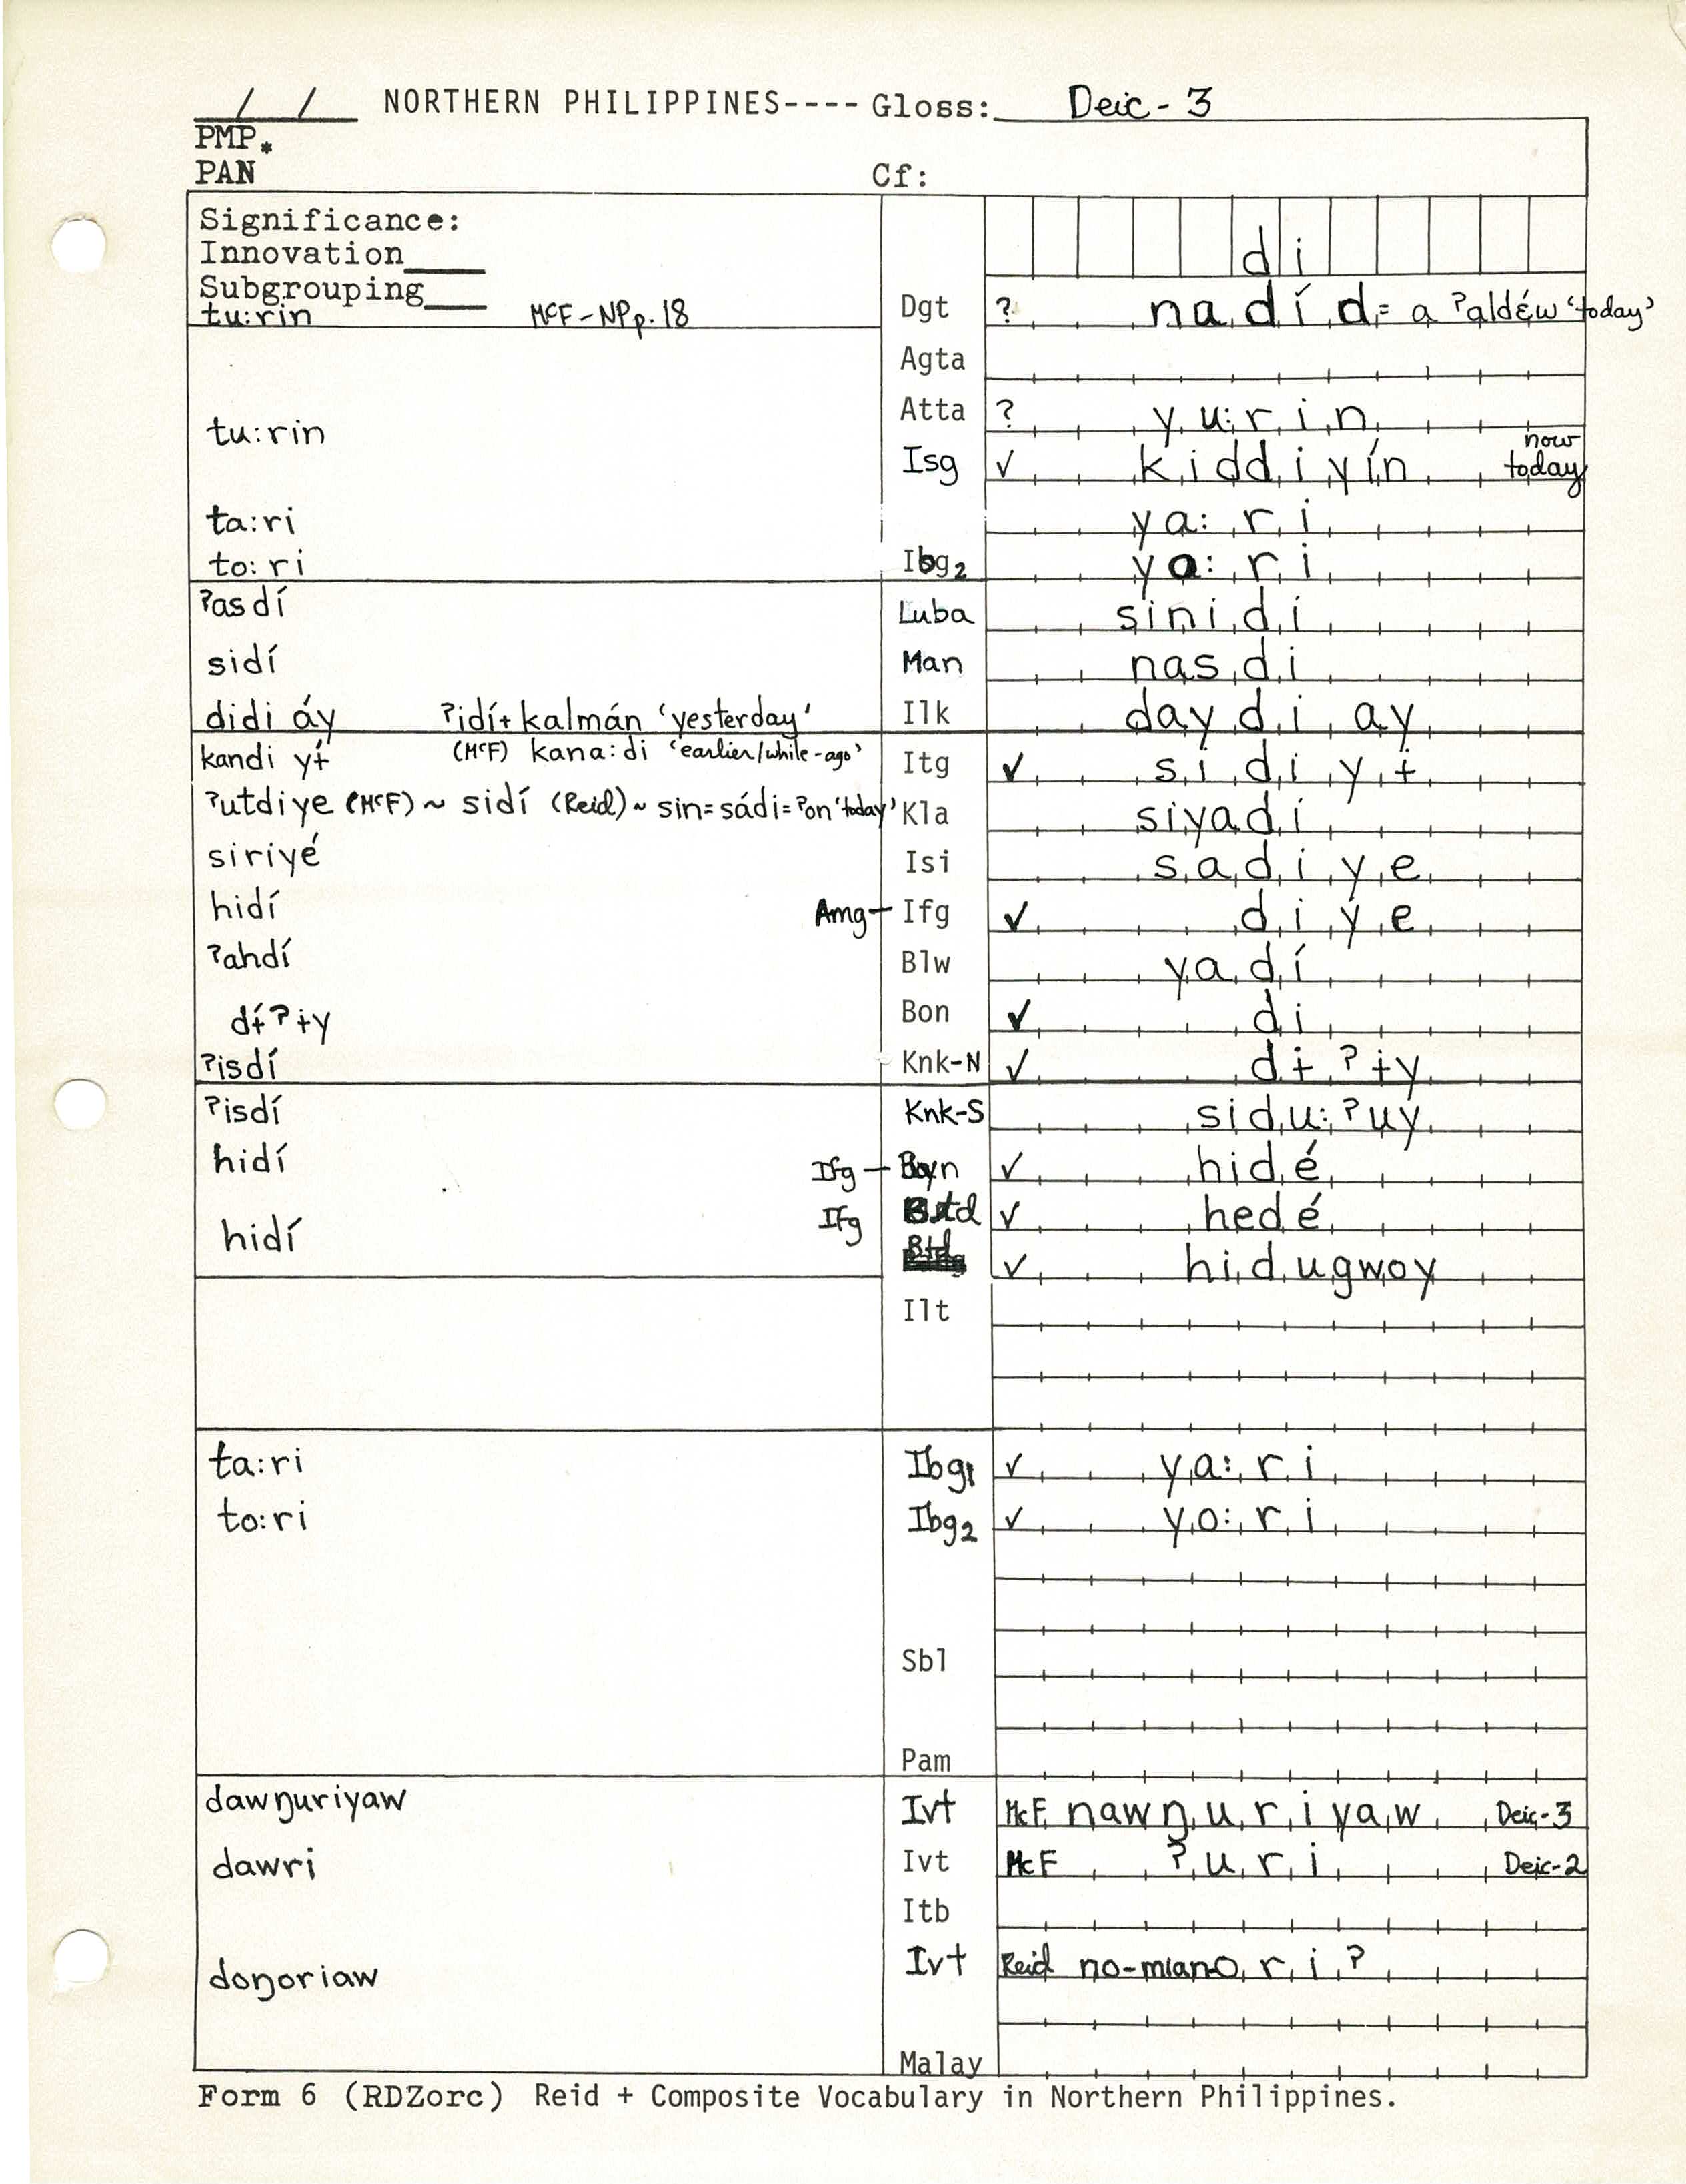 / / NORTHERN PHILIPPINES---- Gloss: Deic - 3
PMP *
PAN Cf:
Significance:
Innovation____
Subgrouping___ di
tu:rin McF - NP p. 18 Dgt ? nadíd = a ʔaldéw ‘today’
Agta
tu:rin Atta ? yu:rin
Isg ✓ kiddiyín now today
ta:ri ya:ri
to:ri Ibg2 ya:ri
ʔasdí Luba sinidi
sidí Man nasdi
didi áy ʔidí + kalmán ‘yesterday’ Ilk daydi ay
kandi yɨ́ (McF) kana:di ‘earlier/while-ago’ Itg ✓ sidiyɨ
ʔutdiye (McF) ~ sidí (Reid) ~ sin=sádi=ʔon ‘today’ Kla siyadí
siriyé Isi sadiye
hidí Amg Ifg ✓ diye
ʔahdí Blw yadí
dɨ́ʔɨy Bon ✓ di
ʔisdí Knk-N ✓ dɨʔɨy
ʔisdí Knk-S sidu:ʔuy
hidí Ifg Byn ✓ hidé
Ifg Btd ✓ hedé
hidí Btd ✓ hidugwoy
Ilt
ta:ri Ibg1 ✓ ya:ri
to:ri Ibg2 ✓ yo:ri
Sbl
Pam
dawŋuriyaw Ivt McF nawŋuriyaw Deic-3
dawri Ivt McF ʔuri Deic-2
Itb
doŋoriaw Ivt Reid no-miano riʔ
Malay
Form 6 (RDZorc) Reid + Composite Vocabulary in Northern Philippines.